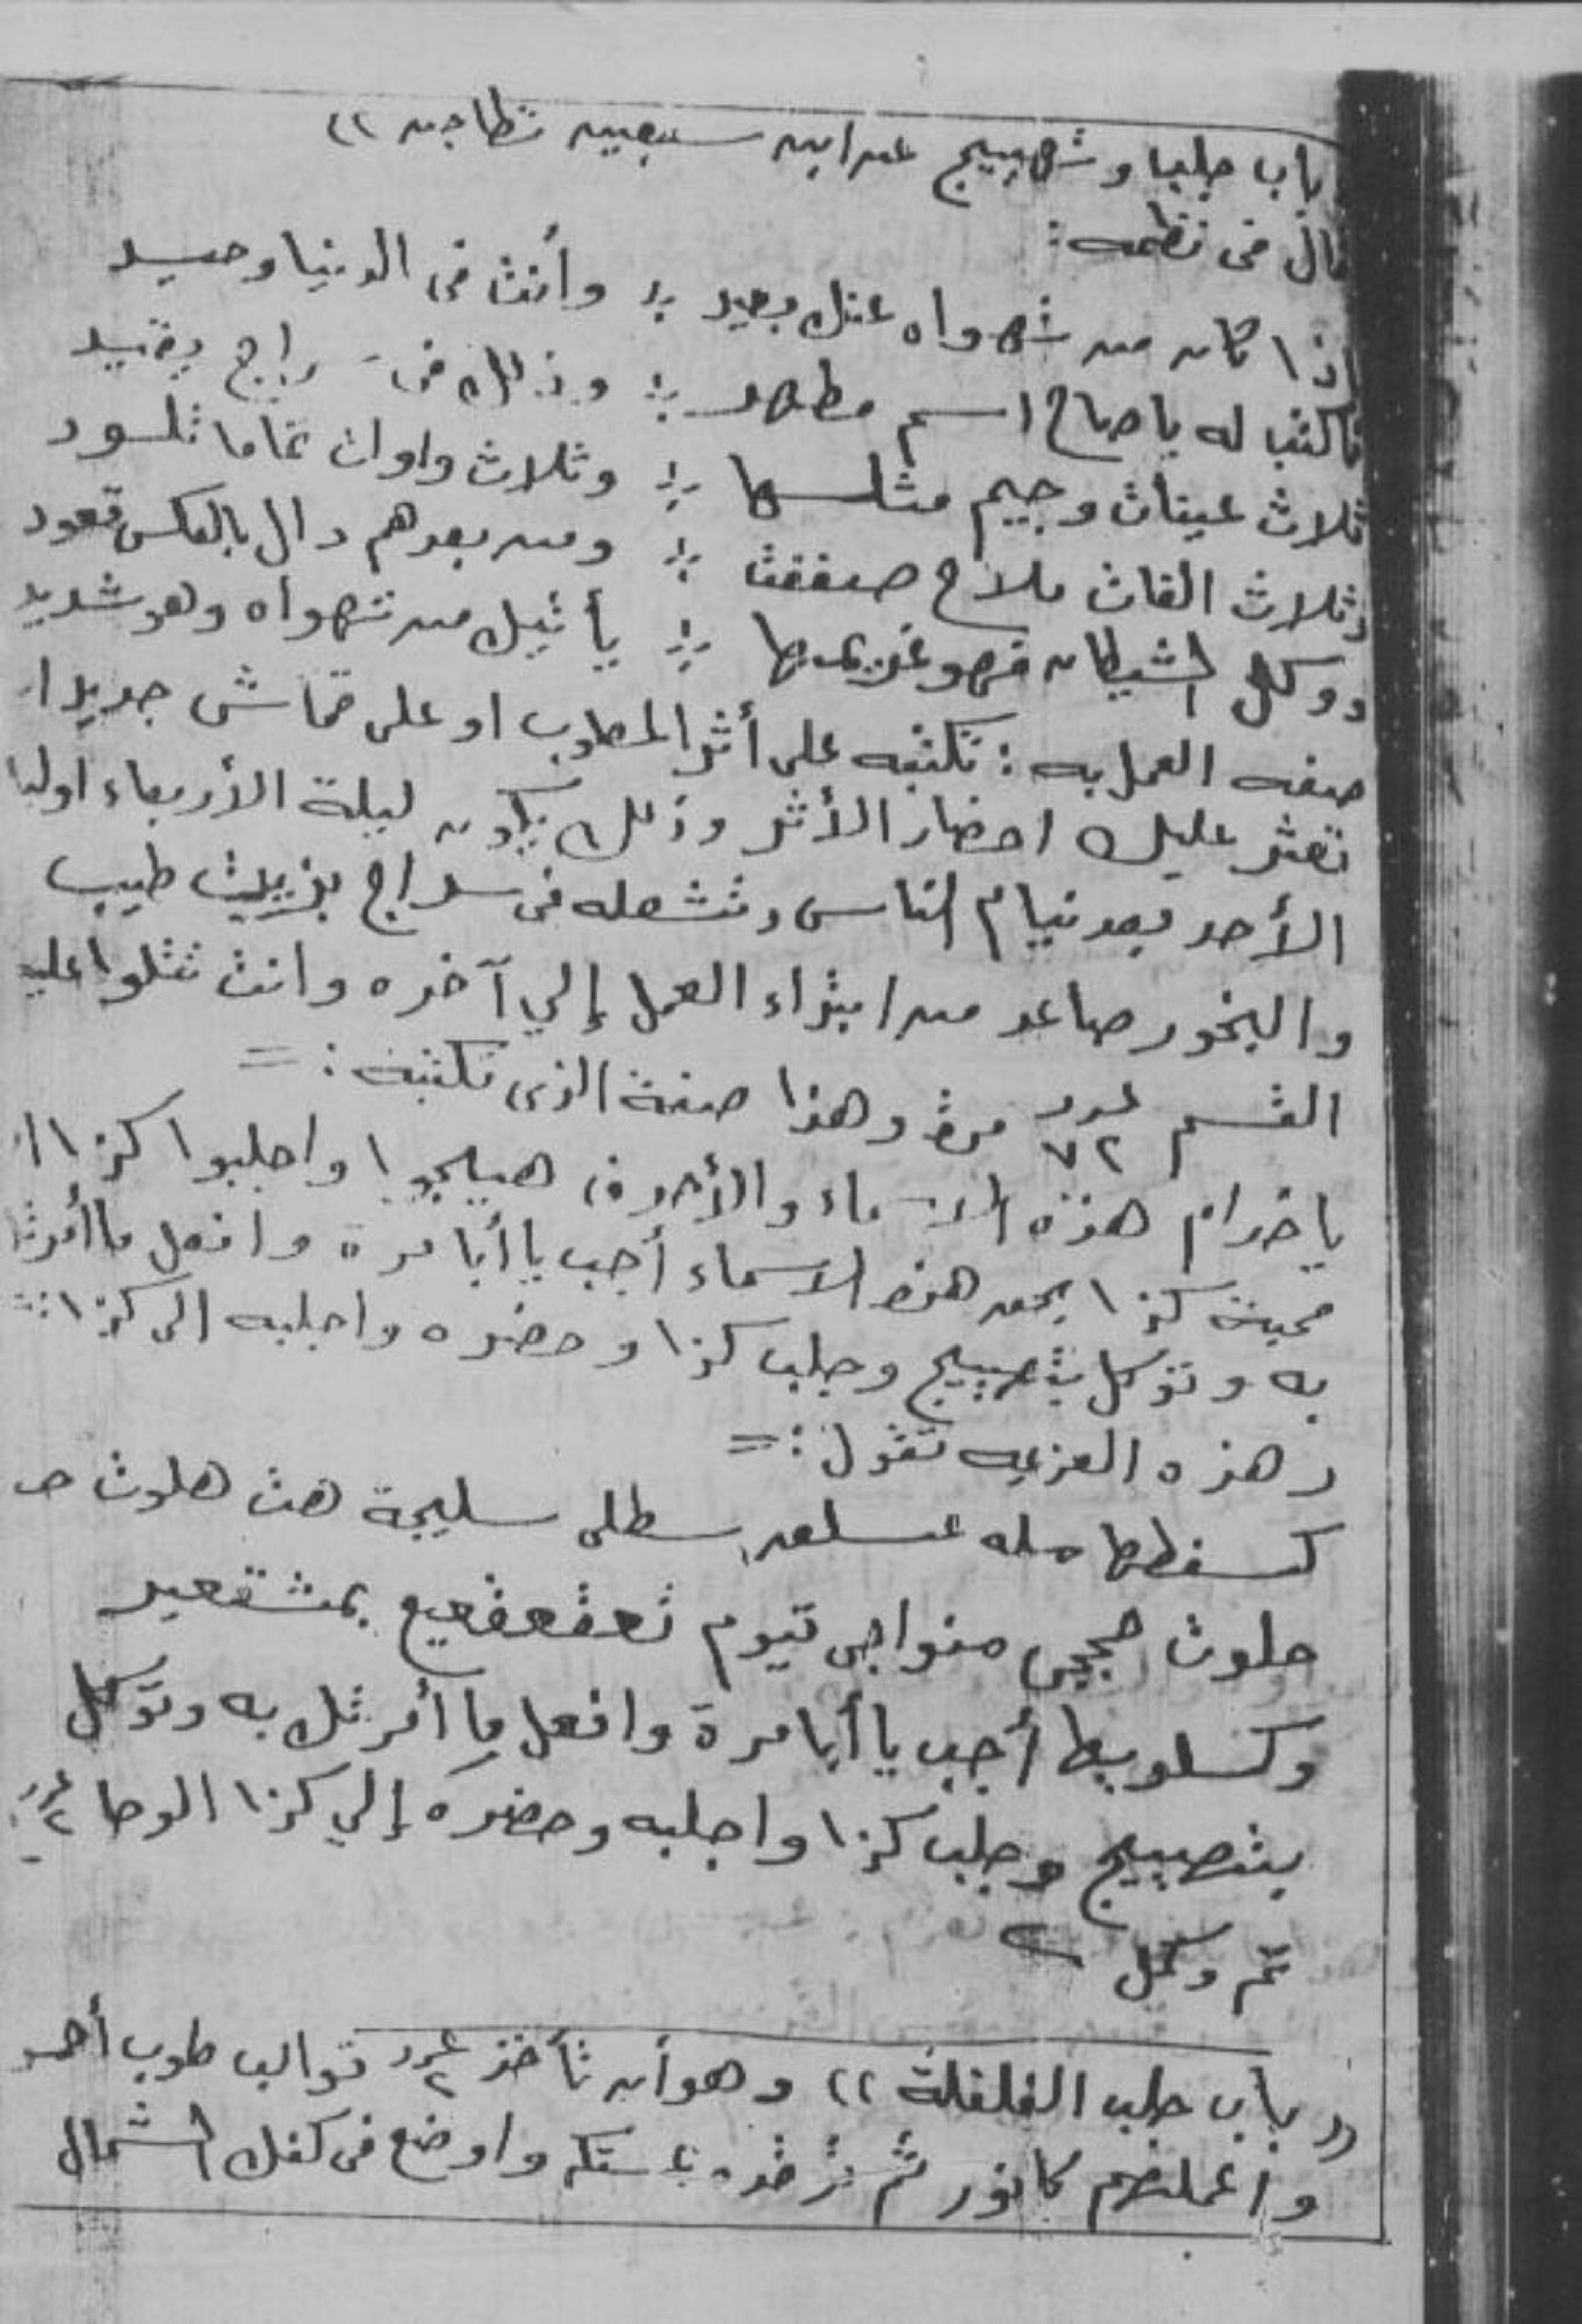 باب جلب وتهييج عن ابن سبعين نظاجه ))
قال فى نظمه :
إذا كان من تهواه عنك بعيد ؛ وأنت فى الدنيا وحيد
فاكتب له يا صاح اسم مطهر ؛ وذلك فى سراج يقيد
ثلاث عينات وجيم مثلها ؛ وثلاث واوات تماما تلسود
وثلاث الفات ملاح صففت ؛ ومن بعدهم دال بالعكس تعود
ووكل الشيطان فهو غريمها ؛ يأتيك من تهواه وهو شديد
صفه العمل به : تكتبه على أثر المطلوب او على قماش جديد ان
تعثر عليك احضار الأثر وذلك يكون ليلة الأربعاء اوليا
الأحد بعد نيام الناس وتشعله فى سراج بزيت طيب
والبخور صاعد من ابتداء العمل إلي آخره وانت تتلوا عليه
القسم عدد ٧٢ مرة وهذا صفة الذى تكتبه : =
يا خدام هذه الاسماء والأحرف هيجوا واجلبوا كذا ا
محبة كذا بحق هذه الاسماء أجب يا أبا مرة وافعل ما أمرت
به وتوكل بتهييج وجلب كذا وحضره واجلبه الى كذا
وهذه العزيمه تقول : =
كسفطها مله عسلعر سطلى سليجة هت هلوت ص
حلوت حججى منواجى تيوم تعقعقعيع بمشقعير
وكسلوبيط أجب يا أبا مرة وافعل ما أمرتك به وتوكل
بتهييج وجلب كذا واجلبه وحضره إلي كذا الوحا ٢
تم وكمل
(( باب جلب الفلفلة )) وهو أن تأخذ عدد ٢ قوالب طوب أحمر
واعملهم كانور ثم واوضع فى كفك الشمال